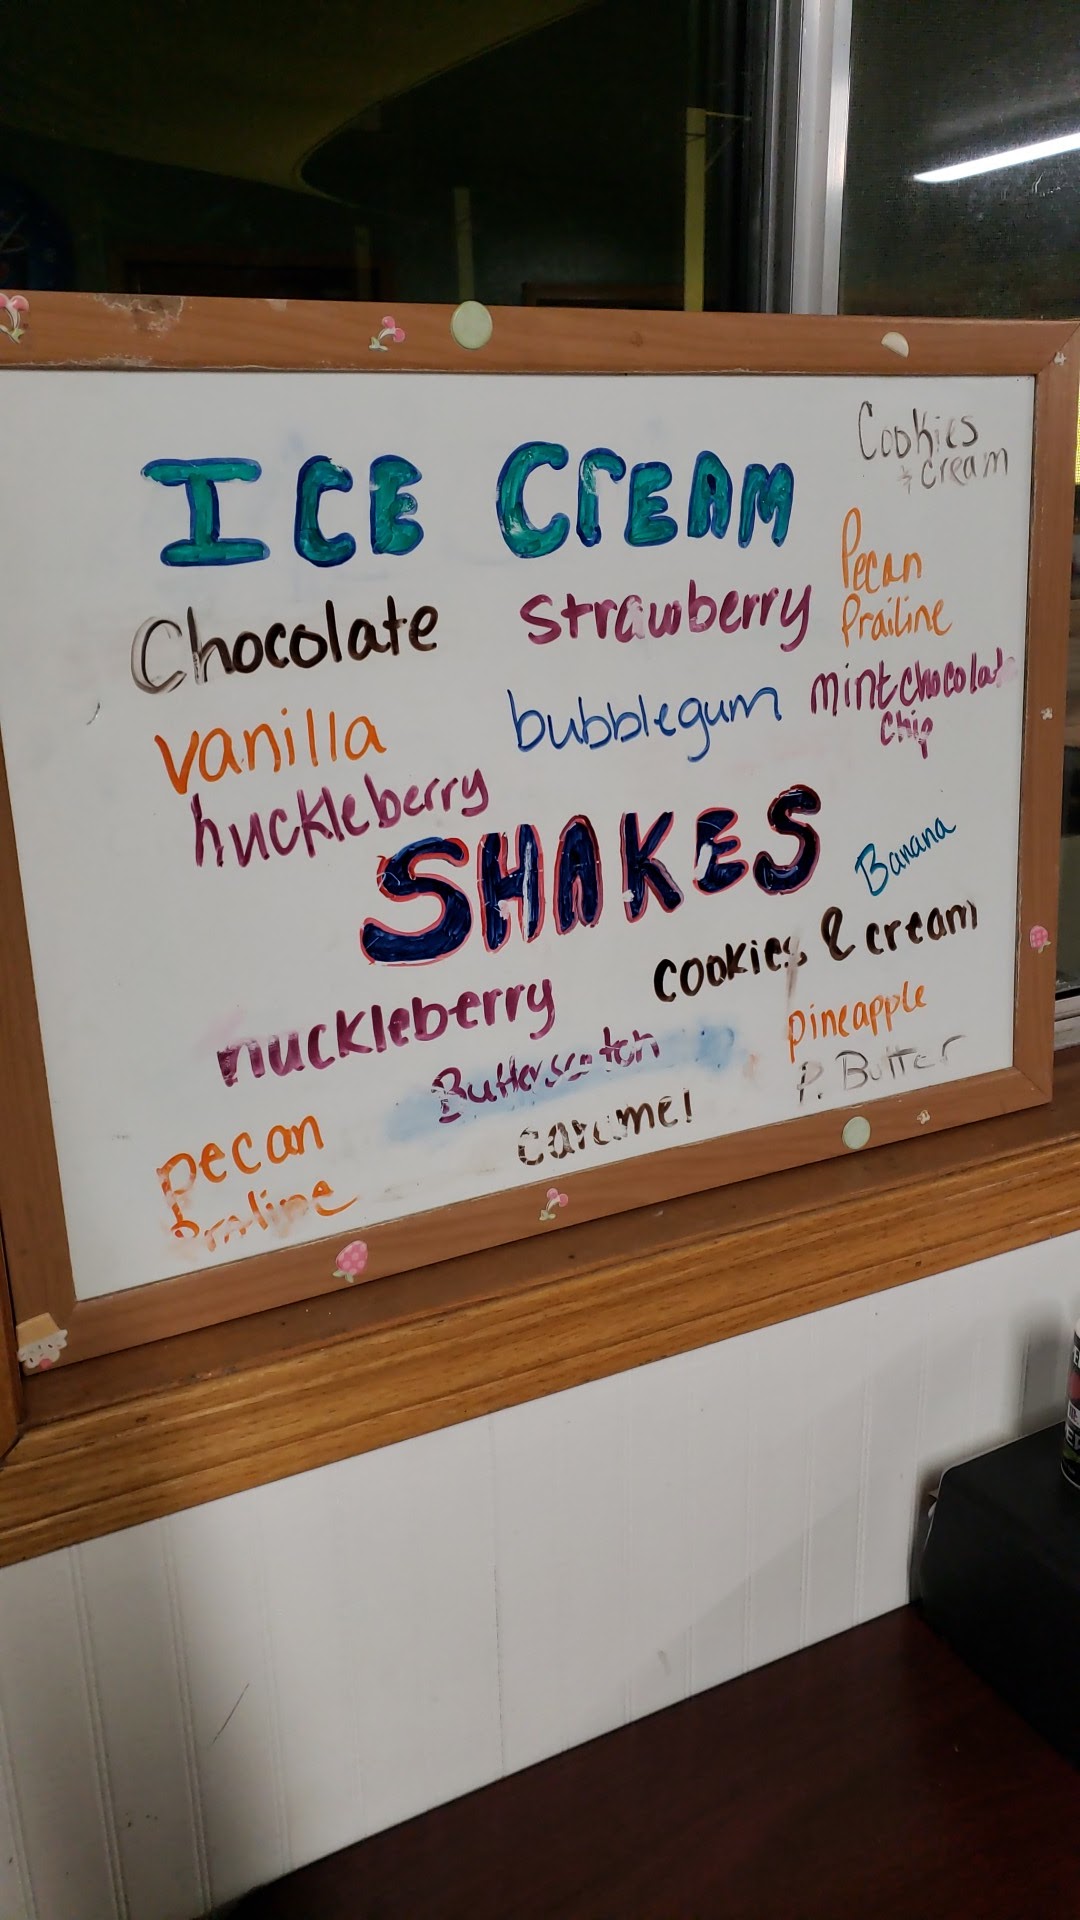 ICE CrEAM
Cookies
& cream
Chocolate
strawberry
Pecan
Prailine
vanilla
bubblegum
mint chocolate
chip
huckleberry
SHAKES
Banana
huckleberry
cookies & cream
Butterscotch
pineapple
P. Butter
caramel
pecan
praline